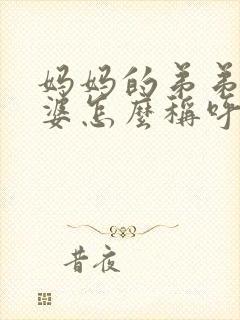 妈妈的弟弟
婆怎麼稱呼
昔夜